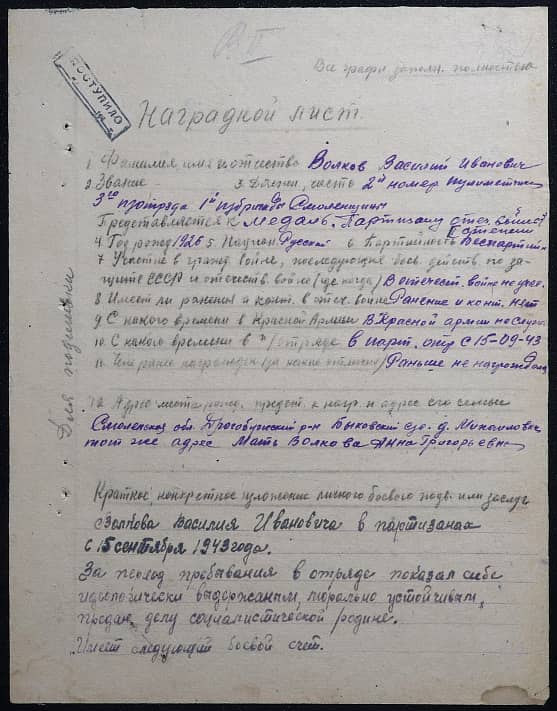 В II
Все графы заполн. полностью
ПОСТУПИЛО
Наградной лист.
1. Фамилия, имя и отчество Волков Василий Иванович
2. Звание — 3. Должн., часть 2й номер пулеметчик
3го п/отряда 1й п/бригады Смоленщины
Представляется к медаль „Партизану отеч. войны"
II степени
4. Год рожд. 1926 5. Национ. Русский 6. Партийность Беспартийн.
7. Участие в гражд. войне, последующих боев. действ. по за-
щите СССР и отечеств. войне (где когда) В отечест. войне не учас.
8. Имеет ли ранения и конт. в отеч. войне Ранение и конт. нет
9. С какого времени в Красной Армии В Красной армии не служ.
10. С какого времени в п/отряде В парт. отр с 15-09-43
11. Чем ранее награжден (за какие отличия) Раньше не награждал
Для подшивки
12. Адрес места рожд. предст. к нагр. и адрес его семьи
Смоленская обл. Дрогобужский р-н Быковский с/с. д. Михайловка
тот же адрес Мать Волкова Анна Григорьевна
Краткое, конкретное изложение личного боевого подв. или заслуг
Волкова Василия Ивановича в партизанах
с 15 сентября 1943 года.
За период пребывания в отряде показал себя
идеологически выдержаным, морально устойчивым,
предан делу социалистической родине.
Имеет следующий боевой счет.